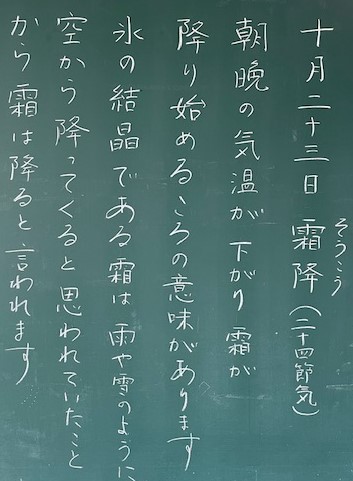 十月二十三日 霜降(二十四節気)
そうこう
朝晩の気温が下がり霜が
降り始めるころの意味があります
氷の結晶である霜は雨や雪のように
空から降ってくると思われていたこと
から霜は降ると言われます